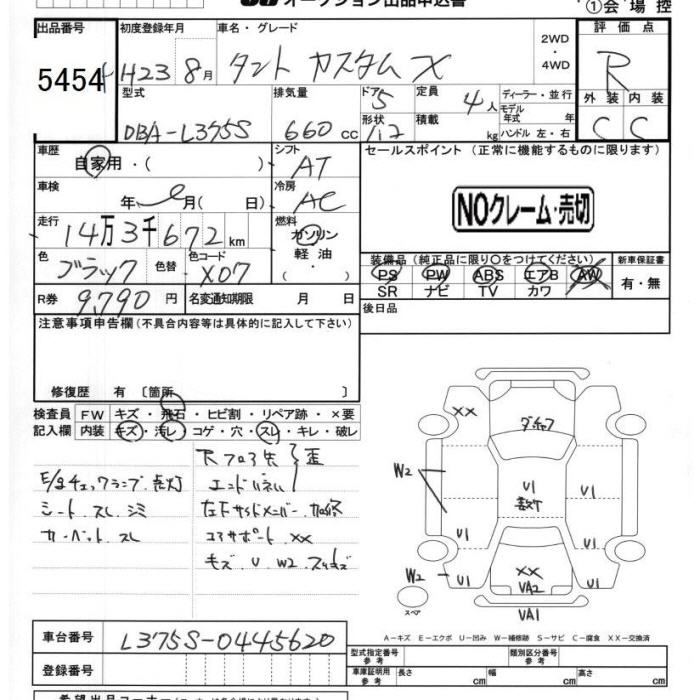 オークション出品申込書
①会場控
出品番号 初度登録年月 車名・グレード 2WD ・ 4WD 評価点
5454 H23 8月 タント カスタム X R
型式 排気量 ドア 定員 ディーラー・並行 外装 内装
DBA-L375S 660cc 5 4人 モデル年式 年 C C
形状 積載 kg ハンドル 左・右
車歴 自家用・( ) シフト AT セールスポイント (正常に機能するものに限ります)
車検 年 月( 日) 冷房 AC
NOクレーム・売切
走行 14万3千672km 燃料 ガソリン 軽油 ( ・ )
色 ブラック 色替 色コード X07
装備品 (純正品に限り○をつけてください) 新車保証書
PS PW ABS エアB AW 有・無
SR ナビ TV カワ
R券 9,790円 名変通知期限 月 日
後日品
注意事項申告欄 (不具合内容等は具体的に記入して下さい)
修復歴 有 〔箇所 〕
検査員記入欄 FW キズ・飛石・ヒビ割・リペア跡・×要
内装 キズ・汚レ・コゲ・穴・スレ・キレ・破レ
E/gチェックランプ点灯
シート スレ シミ
カーペット スレ
エンドパネル
歪
コアサポート XX
キズ U W2
XX
W2
U1
U1
U1
U1
W2
U1
U1
XX
VA2
VA1
スペア
A-キズ E-エクボ U-凹み W-補修跡 S-サビ C-腐食 XX-交換済
車台番号 L375S-0445620
登録番号
型式指定番号 参考 類別区分番号 参考
車庫証明用 参考 長さ cm 幅 cm 高さ cm
希望出品コーナー